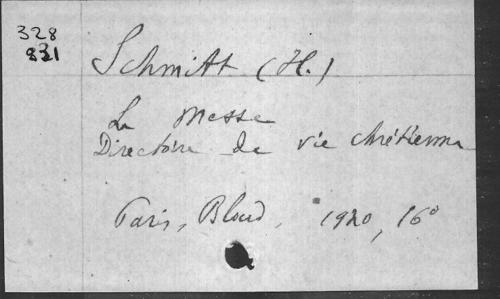 328
821
Schmitt (H.)
La Messe
Directoire de vie chrétienne
Paris, Bloud, 1920, 16°